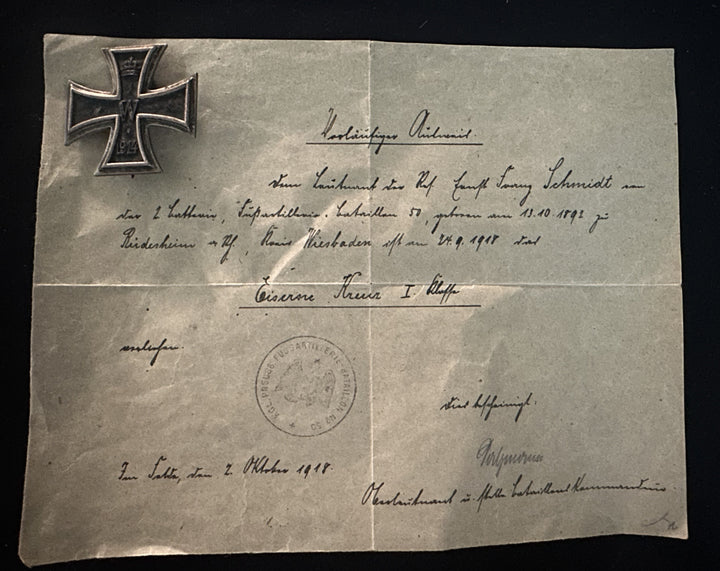 W
1914
Vorläufiger Ausweis.
Dem Leutnant der Res. Ernst Franz Schmidt von
der 2 Batterie, Fußartillerie-Bataillon 50, geboren am 13.10.1892 zu
Rüdesheim a/Rh., Kreis Wiesbaden ist am 24.9.1918 das
Eiserne Kreuz I. Klasse
verliehen.
KGL. PREUSS. FUSSARTILLERIE BATAILLON NO 50
Dies bescheinigt:
Im Felde, den 2. Oktober 1918.
Oberleutnant u. stellv. Bataillons Kommandeur.